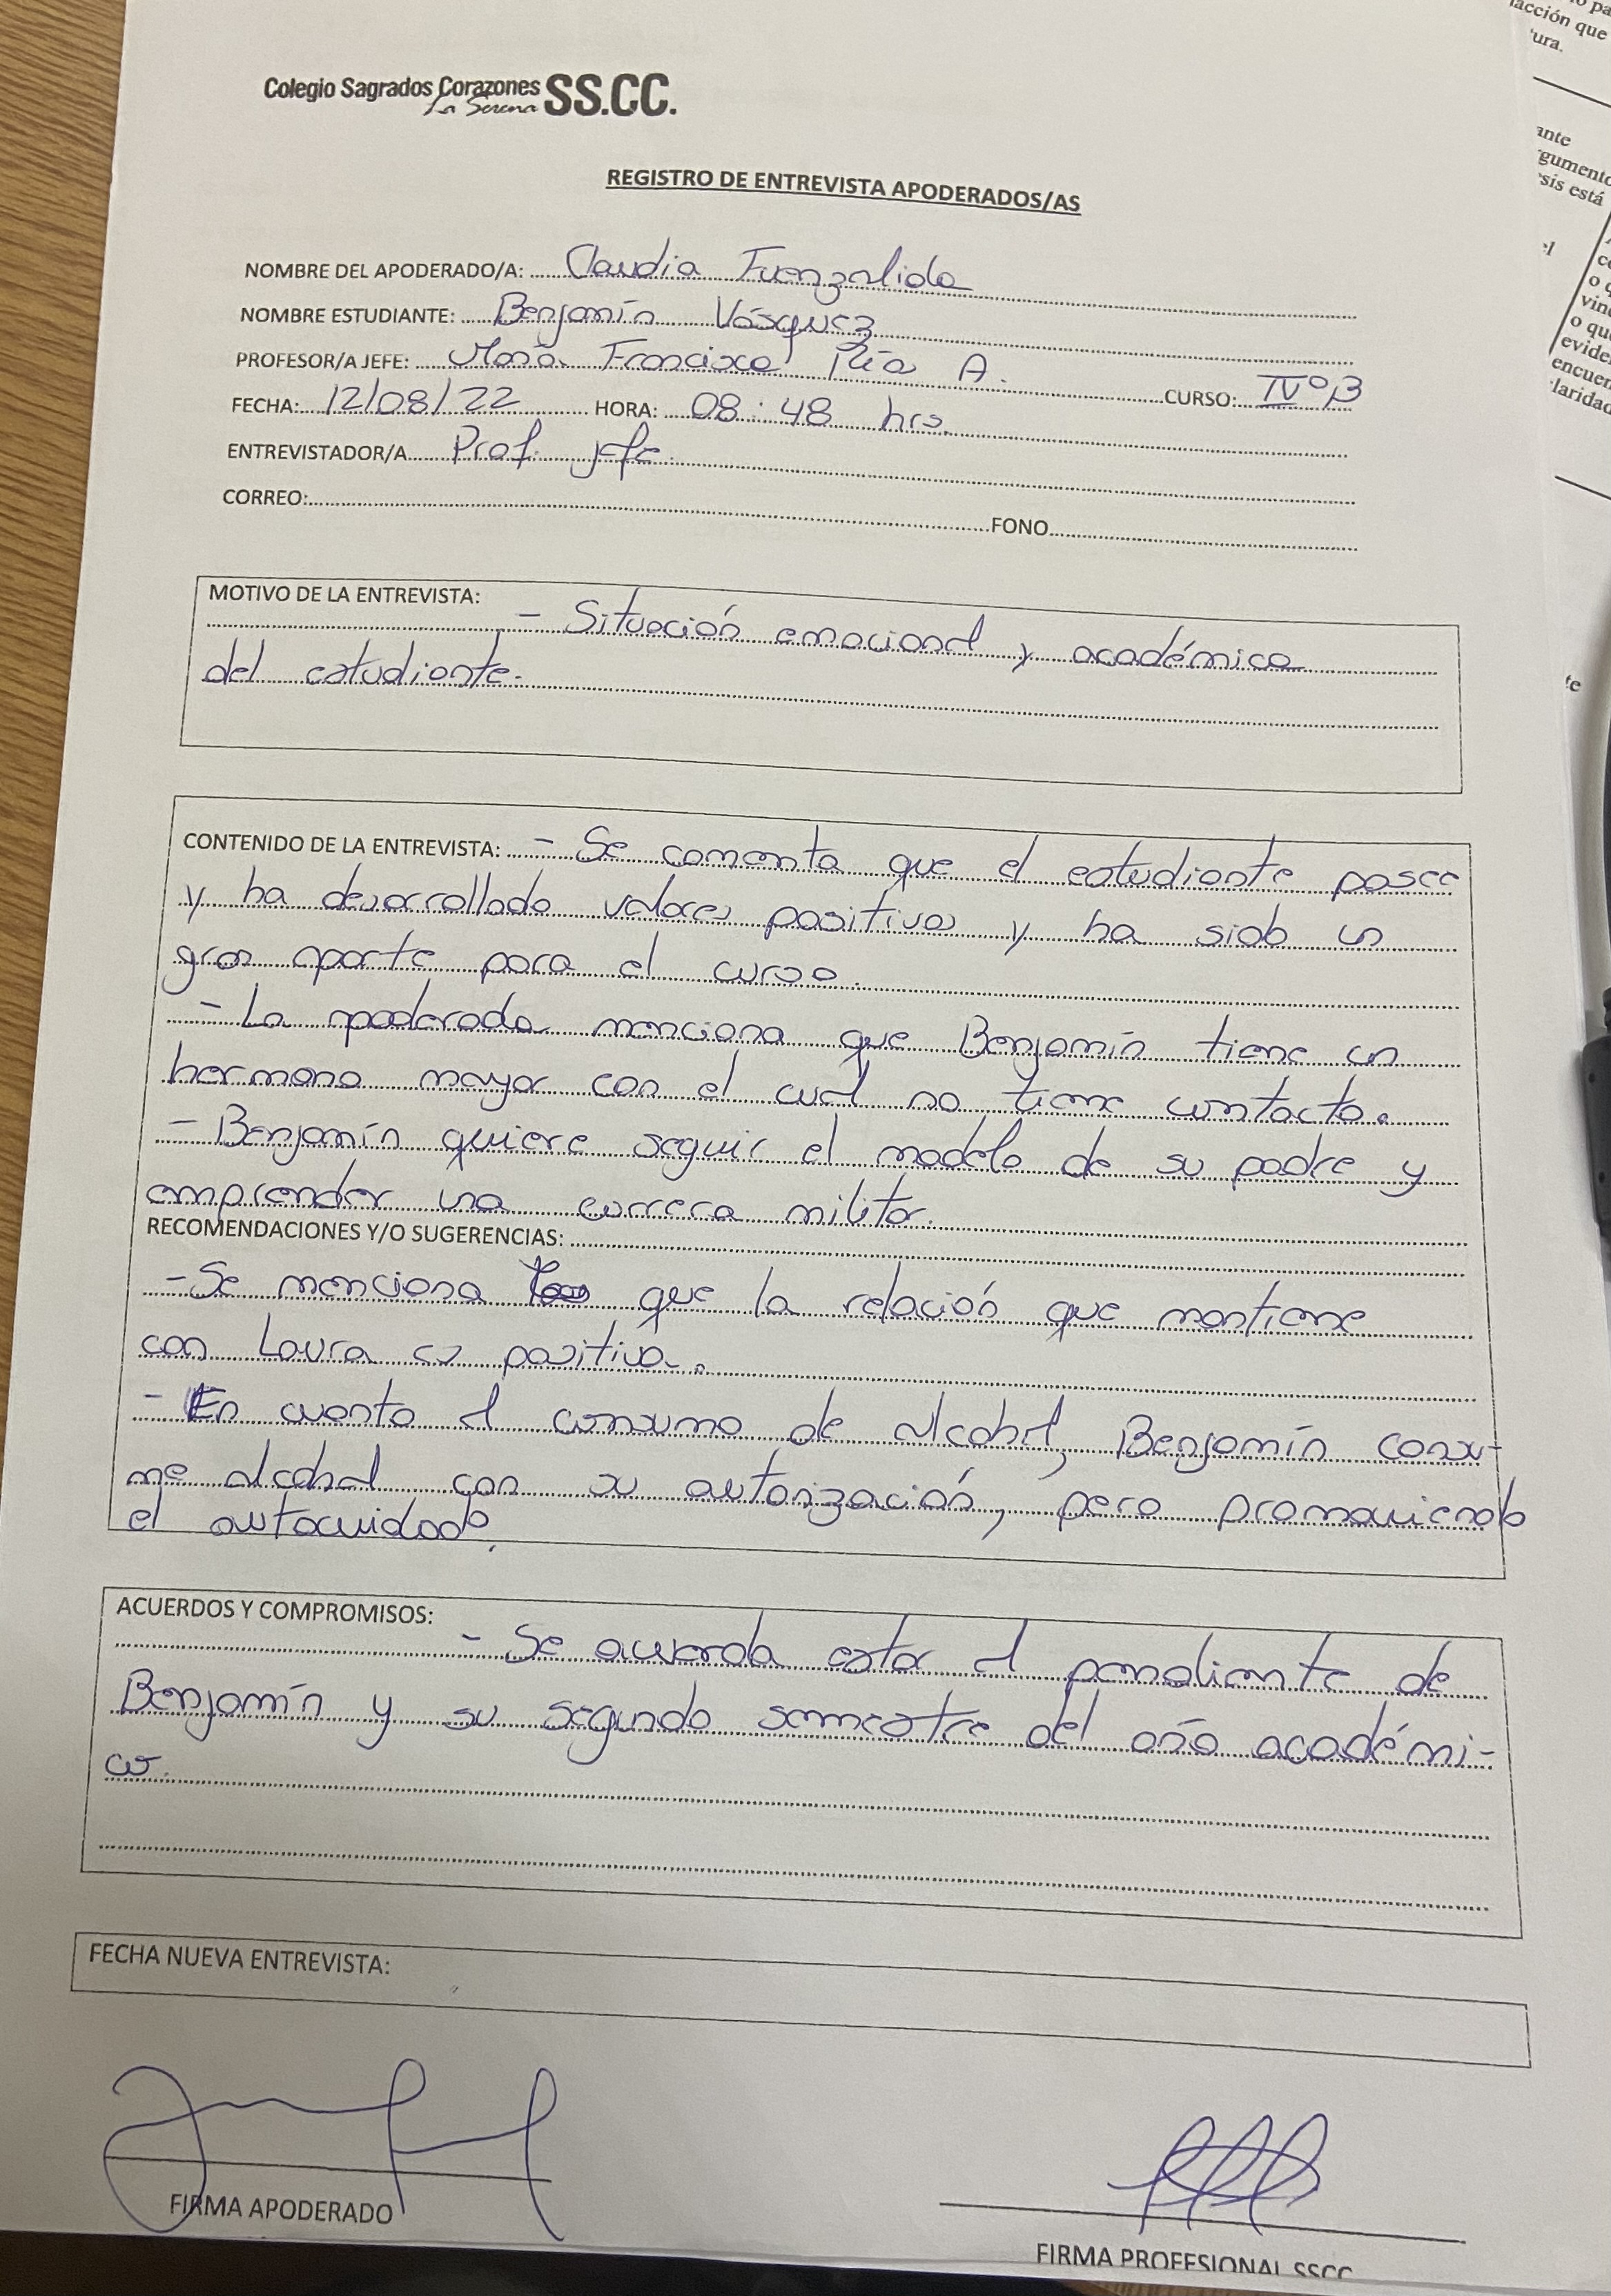 Colegio Sagrados Corazones SS.CC.
La Serena
REGISTRO DE ENTREVISTA APODERADOS/AS
NOMBRE DEL APODERADO/A: Claudia Fuenzalida
NOMBRE ESTUDIANTE: Benjamín Vásquez
PROFESOR/A JEFE: María Francisca Plía A. CURSO: IVºB
FECHA: 12/08/22 HORA: 08:48 hrs.
ENTREVISTADOR/A Prof. jefe.
CORREO: FONO
MOTIVO DE LA ENTREVISTA: - Situación emocional y académica
del estudiante.
CONTENIDO DE LA ENTREVISTA: - Se comenta que el estudiante posee
y ha desarrollado valores positivos y ha sido un
gran aporte para el curso.
- La apoderada menciona que Benjamín tiene un
hermano mayor con el cual no tiene contacto.
- Benjamín quiere seguir el modelo de su padre y
emprender una carrera militar.
RECOMENDACIONES Y/O SUGERENCIAS:
- Se menciona que la relación que mantiene
con Laura es positiva.
- En cuanto al consumo de alcohol, Benjamín consu-
me alcohol con su autorización, pero promoviendo
el autocuidado.
ACUERDOS Y COMPROMISOS:
- Se acuerda estar al pendiente de
Benjamín y su segundo semestre del año académi-
co.
FECHA NUEVA ENTREVISTA:
FIRMA APODERADO
FIRMA PROFESIONAL SSCC
acción que
ura.
ante
gumento
sis está
el
vin
o que
evide
encuen
laridad
te